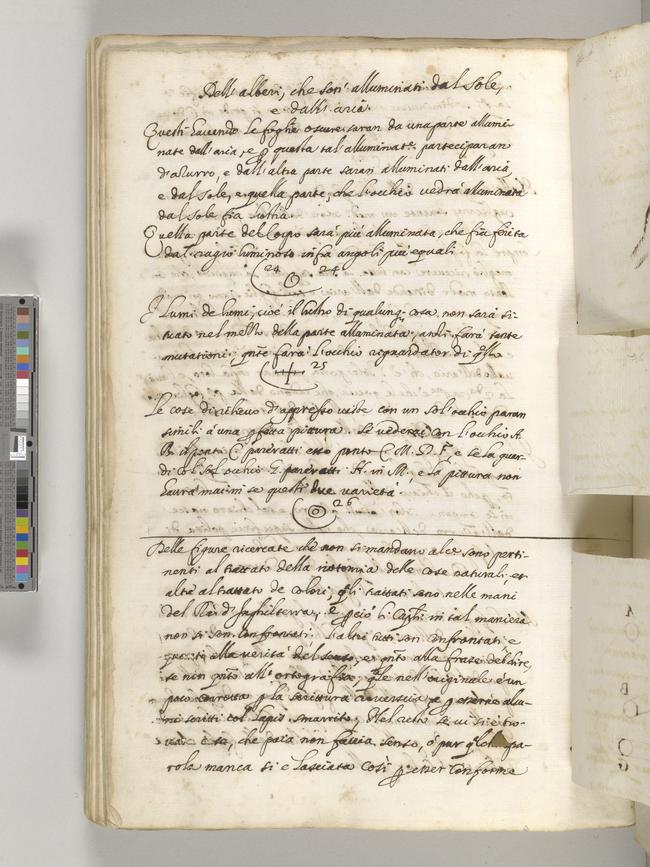 Dell' alberi, che son' alluminati dal sole,
e dall' aria.
Questi havendo le foglie oscure saran da una parte allumi-
nate dall' aria, e p questa tal' alluminat.e participaran
d'azurro, e dall' altra parte saran alluminati dall' aria,
e dal sole, e quella parte, che l'occhio vedrà alluminata
dal sole fia lustra.
Quella parte del Corpo sarà più alluminata, che fia ferita
dal raggio luminoso infra angoli più equali
24 24
I Lumi de lumi, cioè il lustro di qualunq. cosa, non sarà si-
tuato nel mezzo della parte alluminata, anzi farà tante
mutationi, qnte farà l'occhio riguardator di qllo
25
Le cose di rilievo d'appresso viste con un sol' occhio paran
simili à una pfetta pittura. Se vederai con l'occhio A.
B. il ponto C. pareratti esso ponto C. M. D. F. e se la guar-
di col sol' occhio Z. pareratti H. in M., e la pittura non
havrà mai in se questi due varietà.
26
Delle figure ricercate che non si mandano alc.e sono perti-
nenti al trattato della notomia delle cose naturali et
altre al trattato de colori, qli trattati sono nelle mani
del Rè d' Inghilterra, e pciò li Capli in tal maniera
non si son confrontati. L'altri tutti son confrontati e
quanto alla verità del senso, e qnto alla frase del dire,
se non qnto all' ortografia, qle nell' originale è un
poco corrotta p la scrittura riverscia e p esserne alcu-
ni scritti col' lapis smarrito, Nel resto se vi si è tro-
vata cosa, che paia non faccia senso, ò pur qlche pa-
rola manca si è lasciata così p esser conforme
A
B